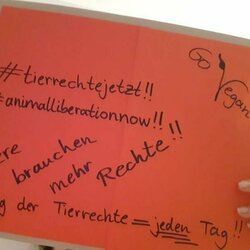 Go Vegan
#tierrechtejetzt!!
#animalliberationnow!!
ere
brauchen
mehr Rechte!!
g der Tierrechte = jeden Tag!!